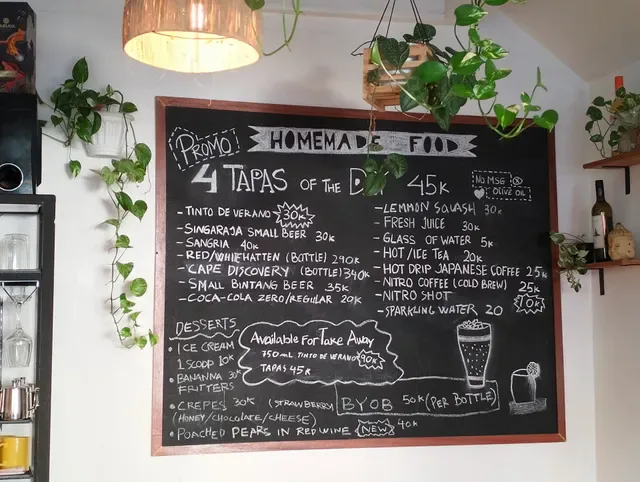 PROMO
HOMEMADE FOOD
4 TAPAS OF THE D 45K
NO MSG
OLIVE OIL
- TINTO DE VERANO 30K
- SINGARAJA SMALL BEER 30K
- SANGRIA 40K
- RED/WHITE HATTEN (BOTTLE) 290K
- CAPE DISCOVERY (BOTTLE) 340K
- SMALL BINTANG BEER 35K
- COCA-COLA ZERO/REGULAR 20K
- LEMMON SQUASH 30K
- FRESH JUICE 30K
- GLASS OF WATER 5K
- HOT/ICE TEA 20K
- HOT DRIP JAPANESE COFFEE 25K
- NITRO COFFEE (COLD BREW) 25K
- NITRO SHOT 10K
- SPARKLING WATER 20
DESSERTS
• ICE CREAM
1 SCOOP 10K
• BANANNA 30K
FRITTERS
• CREPES 30K (STRAWBERRY
(HONEY/CHOCOLATE/CHEESE)
• POACHED PEARS IN RED WINE NEW 40K
Available For Take Away
750 ML TINTO DE VERANO 90K
TAPAS 45K
BYOB 50K (PER BOTTLE)